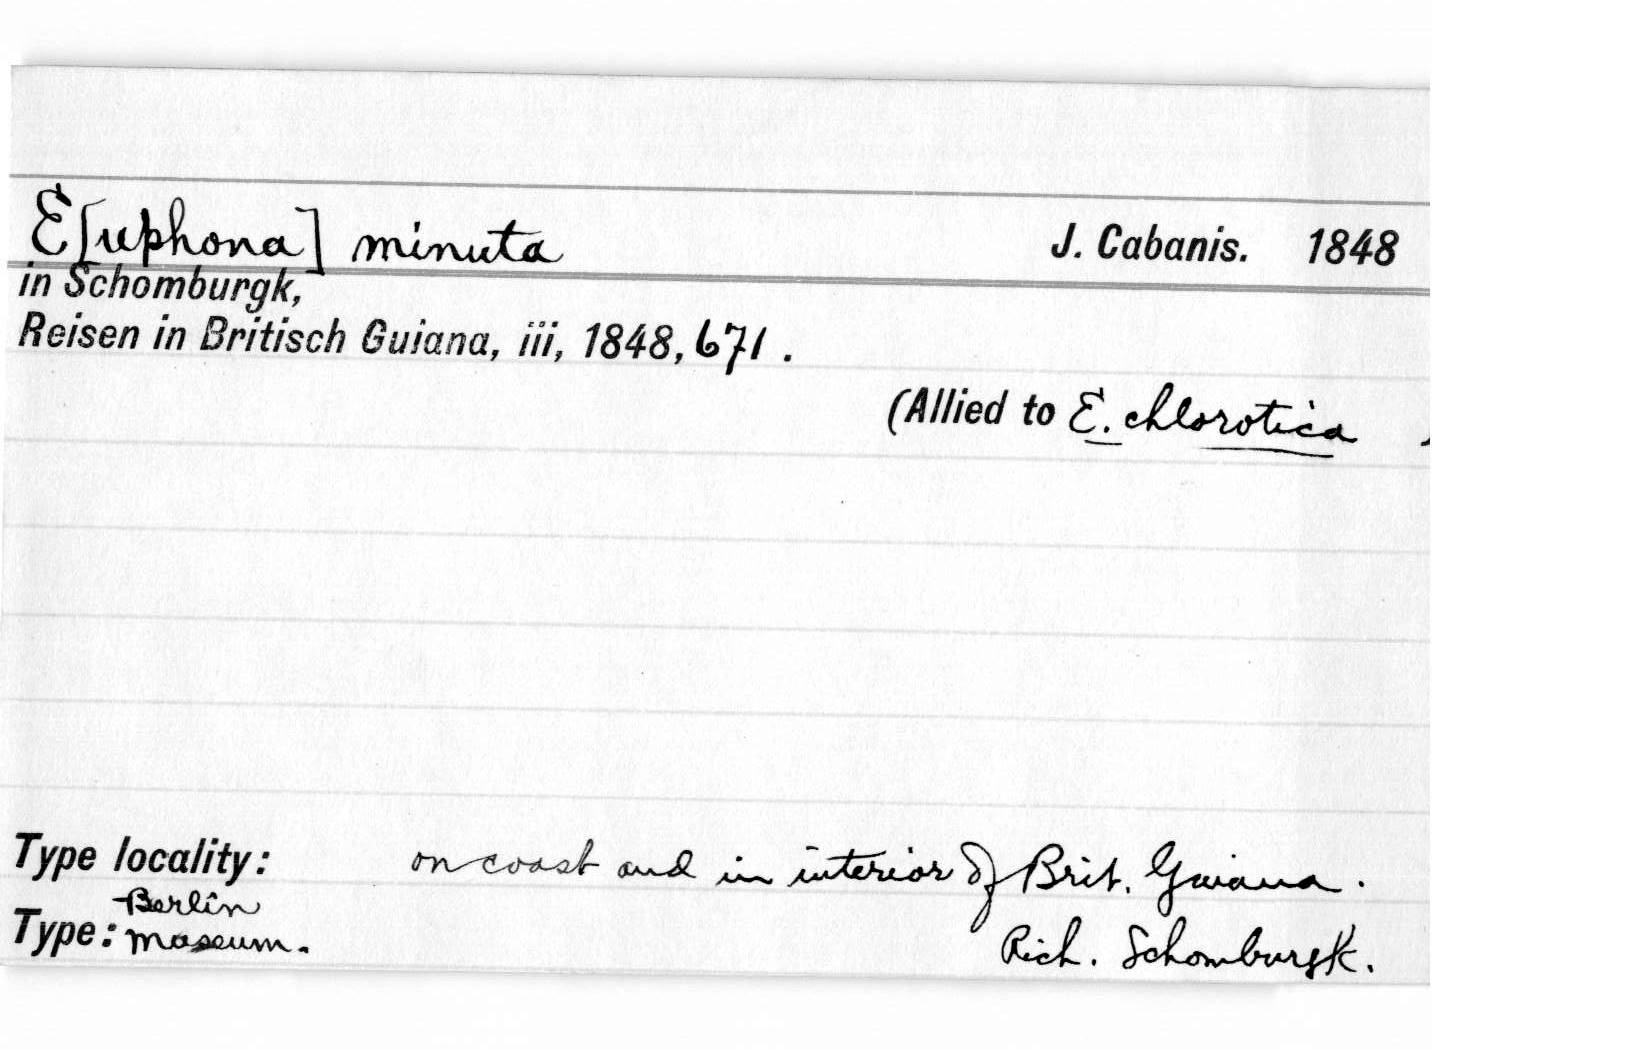 E[uphona] minuta J. Cabanis. 1848
in Schomburgk,
Reisen in Britisch Guiana, iii, 1848, 671.
(Allied to E. chlorotica )
Type locality: on coast and in interior of Brit. Guiana.
Berlin
Type: Museum. Rich. Schomburgk.